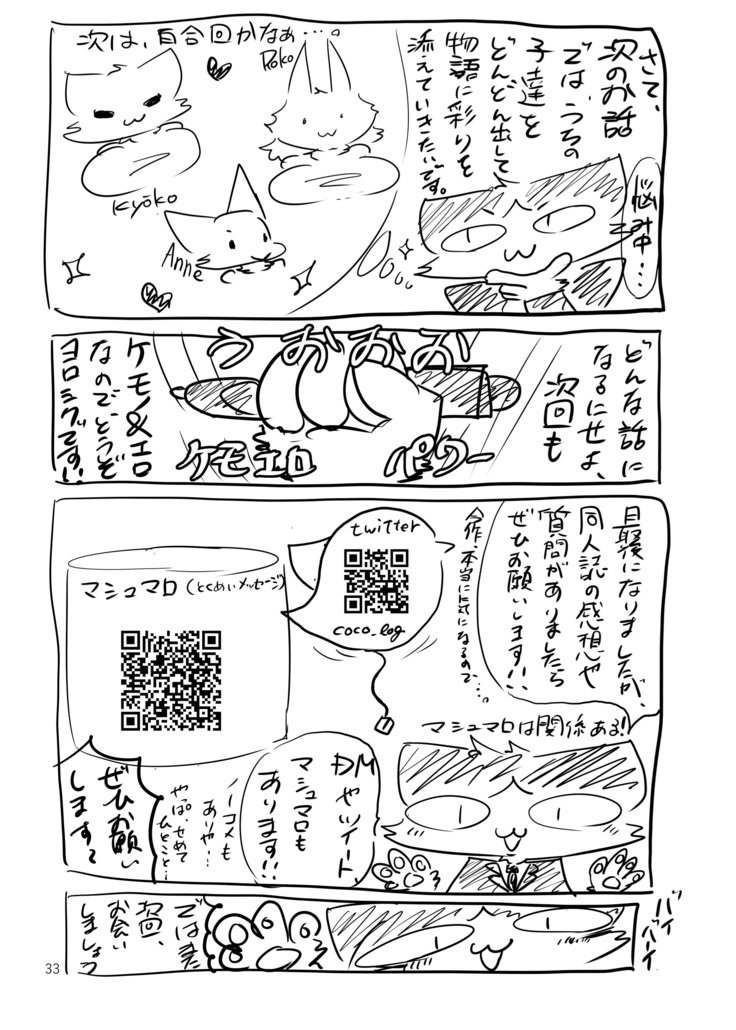 さて、
次のお話
では、うちの
子達を
どんどん出して
物語に彩りを
添えていきたいです。
悩み中…
次は、百合回かなぁ…。
Roko
Kyoko
Anne
どんな話に
なるにせよ、
次回も
うおおおお
ケモエロ
パワー
ケモノ&エロ
なのでどうぞ
ヨロシクです!!
最後になりましたが、
同人誌の感想や
質問がありましたら
ぜひお願いします!!
今作、本当に気になるので…。
twitter
coco_log
マシュマロ(とくめいメッセージ)
マシュマロは関係ある!
DMやツイート、
マシュマロも
あります!!
ノーコメも
ありや…
やっぱ、せめて
ひとこと…
ぜひお願い
します
バイ
バーイ
ではまた
次回、
お会い
しましょう
33